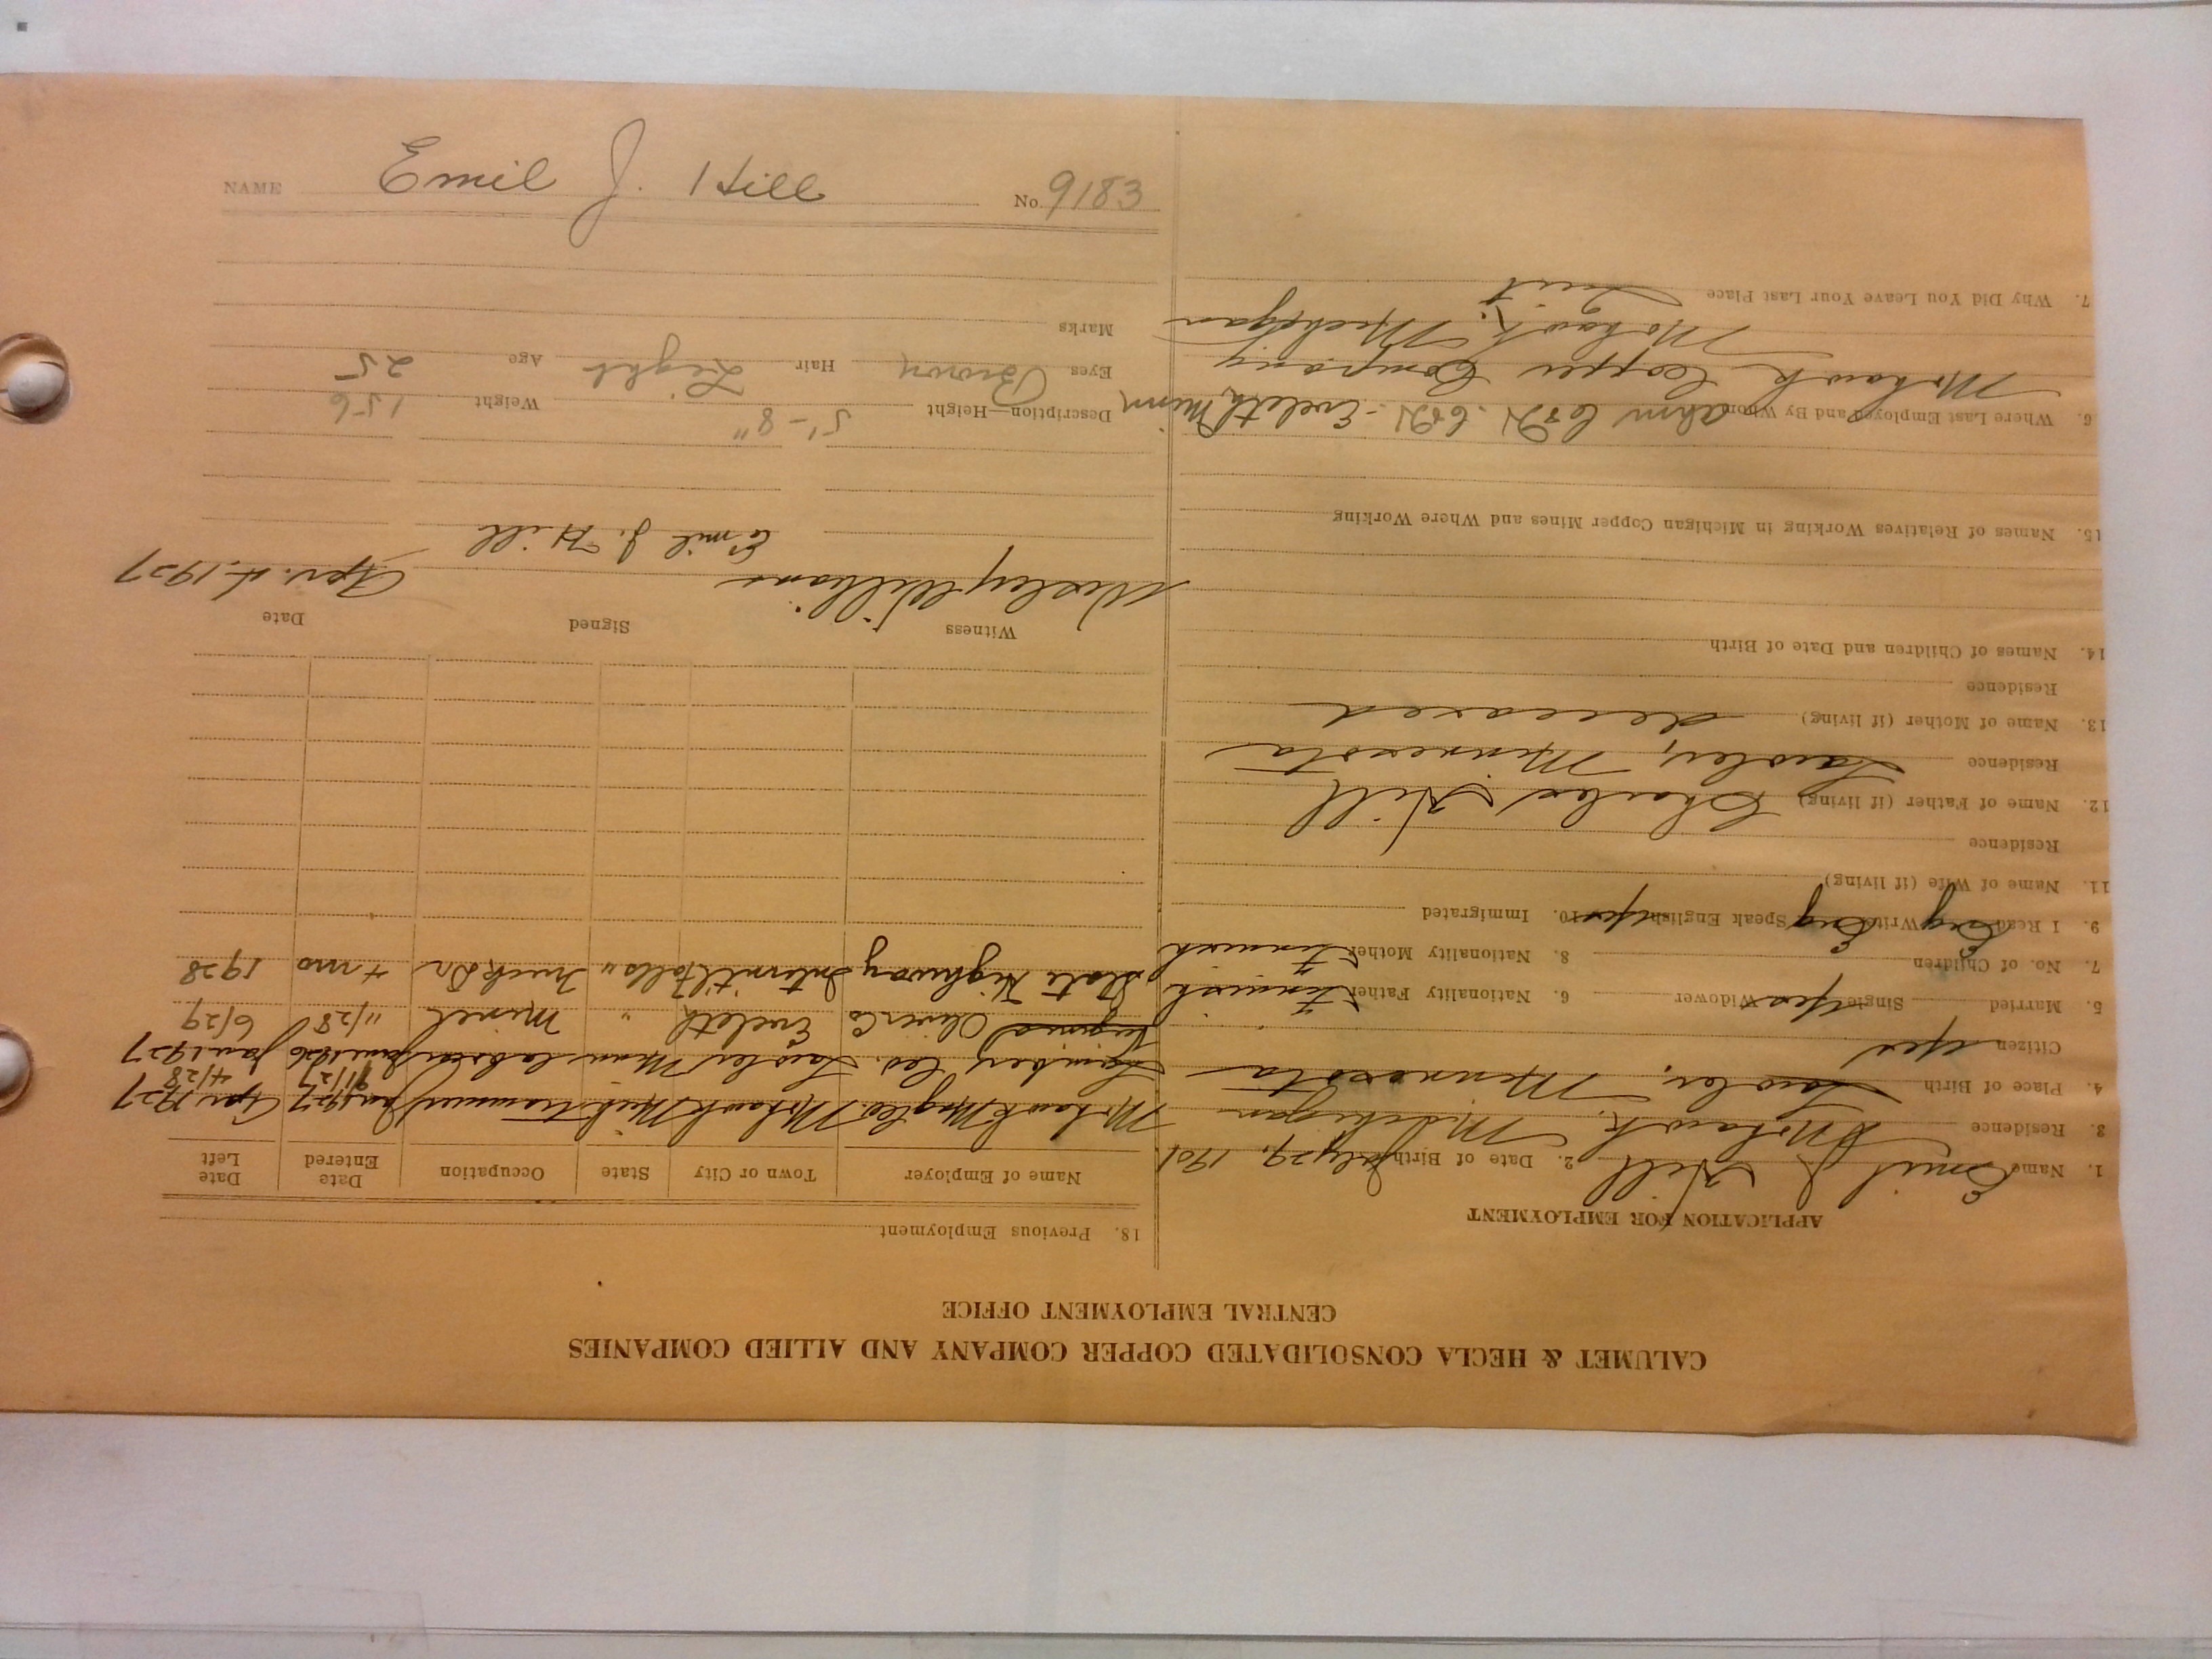 NAME Emil J. Hill No. 9183
CALUMET & HECLA CONSOLIDATED COPPER COMPANY AND ALLIED COMPANIES
CENTRAL EMPLOYMENT OFFICE
APPLICATION FOR EMPLOYMENT
1. Name Emil J Hill 2. Date of Birth July 29, 1901
3. Residence Mohawk, Michigan
4. Place of Birth Lawler, Minnesota
Citizen yes
5. Married Single yes Widower 6. Nationality Father Finnish
7. No. of Children 8. Nationality Mother Finnish
9. I Read Eng Write Eng Speak English yes 10. Immigrated
11. Name of Wife (if living)
Residence
12. Name of Father (if living) Charles Hill
Residence Lawler, Minnesota
13. Name of Mother (if living) deceased
Residence
14. Names of Children and Date of Birth
15. Names of Relatives Working in Michigan Copper Mines and Where Working
6. Where Last Employed and By Whom Ahm C&H. C&H - Eveleth, Minn
Mohawk Copper Company
Mohawk, Michigan
7. Why Did You Leave Your Last Place quit
18. Previous Employment
Name of Employer Town or City State Occupation Date Entered Date Left
Mohawk Mng Co. Mohawk Mich trammer Jan 1927 Apr 1927
9/27 4/28
Lumber Co. Lawler Minn laborer June 1926 Jan 1927
Oliver Co Eveleth " Miner 11/28 6/29
State Highway Internt'l Falls " Truck Dr 4 mo 1928
Witness Signed Date
Wesley Williams Emil J. Hill Apr. 4, 1927
Description—Height 5'-8" Weight 156
Eyes Brown Hair Light Age 25
Marks